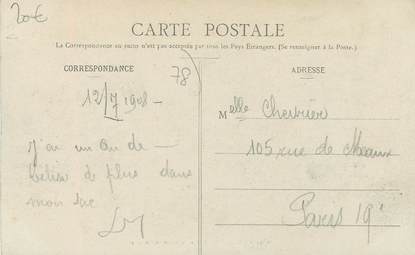 20€
CARTE POSTALE
La Correspondance au recto n'est pas acceptée par tous les Pays Etrangers. (Se renseigner à la Poste.)
CORRESPONDANCE
ADRESSE
78
12/7 1908 -
J'ai un An de -
bêtise de plus dans
mon sac
LM
Melle Chevrier
105 rue de Meaux
Paris 19e